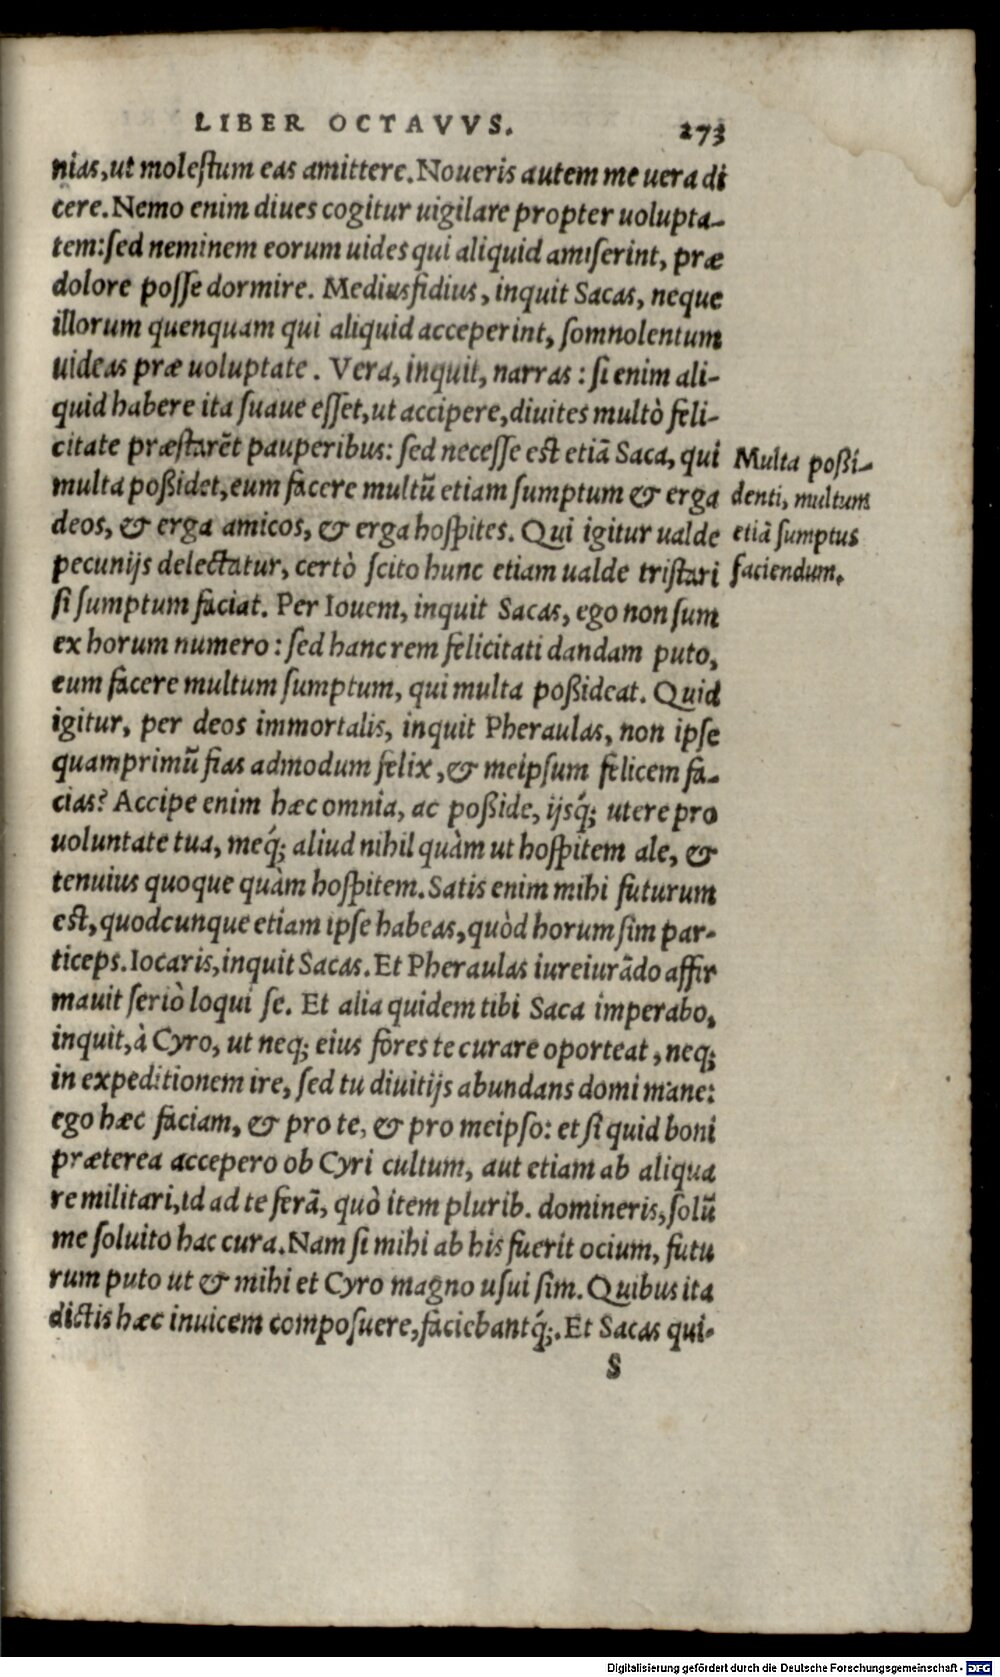 LIBER OCTAVVS. 273
nias, ut molestum eas amittere. Noueris autem me uera di
cere. Nemo enim diues cogitur uigilare propter uolupta-
tem: sed neminem eorum uides qui aliquid amiserint, præ
dolore posse dormire. Mediusfidius, inquit Sacas, neque
illorum quenquam qui aliquid acceperint, somnolentum
uideas præ uoluptate. Vera, inquit, narras: si enim ali-
quid habere ita suaue esset, ut accipere, diuites multò feli-
citate præstarēt pauperibus: sed necesse est etiā Saca, qui
multa poßidet, eum facere multū etiam sumptum & erga
deos, & erga amicos, & erga hospites. Qui igitur ualde
pecunijs delectatur, certò scito hunc etiam ualde tristari
si sumptum faciat. Per Iouem, inquit Sacas, ego non sum
ex horum numero: sed hanc rem felicitati dandam puto,
eum facere multum sumptum, qui multa poßideat. Quid
igitur, per deos immortalis, inquit Pheraulas, non ipse
quamprimū fias admodum felix, & meipsum felicem fa-
cias? Accipe enim hæc omnia, ac poßide, ijsq́; utere pro
uoluntate tua, meq́; aliud nihil quàm ut hospitem ale, &
tenuius quoque quàm hospitem. Satis enim mihi futurum
est, quodcunque etiam ipse habeas, quòd horum sim par-
ticeps. Iocaris, inquit Sacas. Et Pheraulas iureiurādo affir
mauit seriò loqui se. Et alia quidem tibi Saca imperabo,
inquit, à Cyro, ut neq; eius fores te curare oporteat, neq;
in expeditionem ire, sed tu diuitijs abundans domi mane:
ego hæc faciam, & pro te, & pro meipso: et si quid boni
præterea accepero ob Cyri cultum, aut etiam ab aliqua
re militari, id ad te ferā, quò item plurib. domineris, solū
me soluito hac cura. Nam si mihi ab his fuerit ocium, futu
rum puto ut & mihi et Cyro magno usui sim. Quibus ita
dictis hæc inuicem composuere, faciebantq́;. Et Sacas qui-
S
Multa poßi-
denti, multum
etiā sumptus
faciendum.
Digitalisierung gefördert durch die Deutsche Forschungsgemeinschaft - DFG